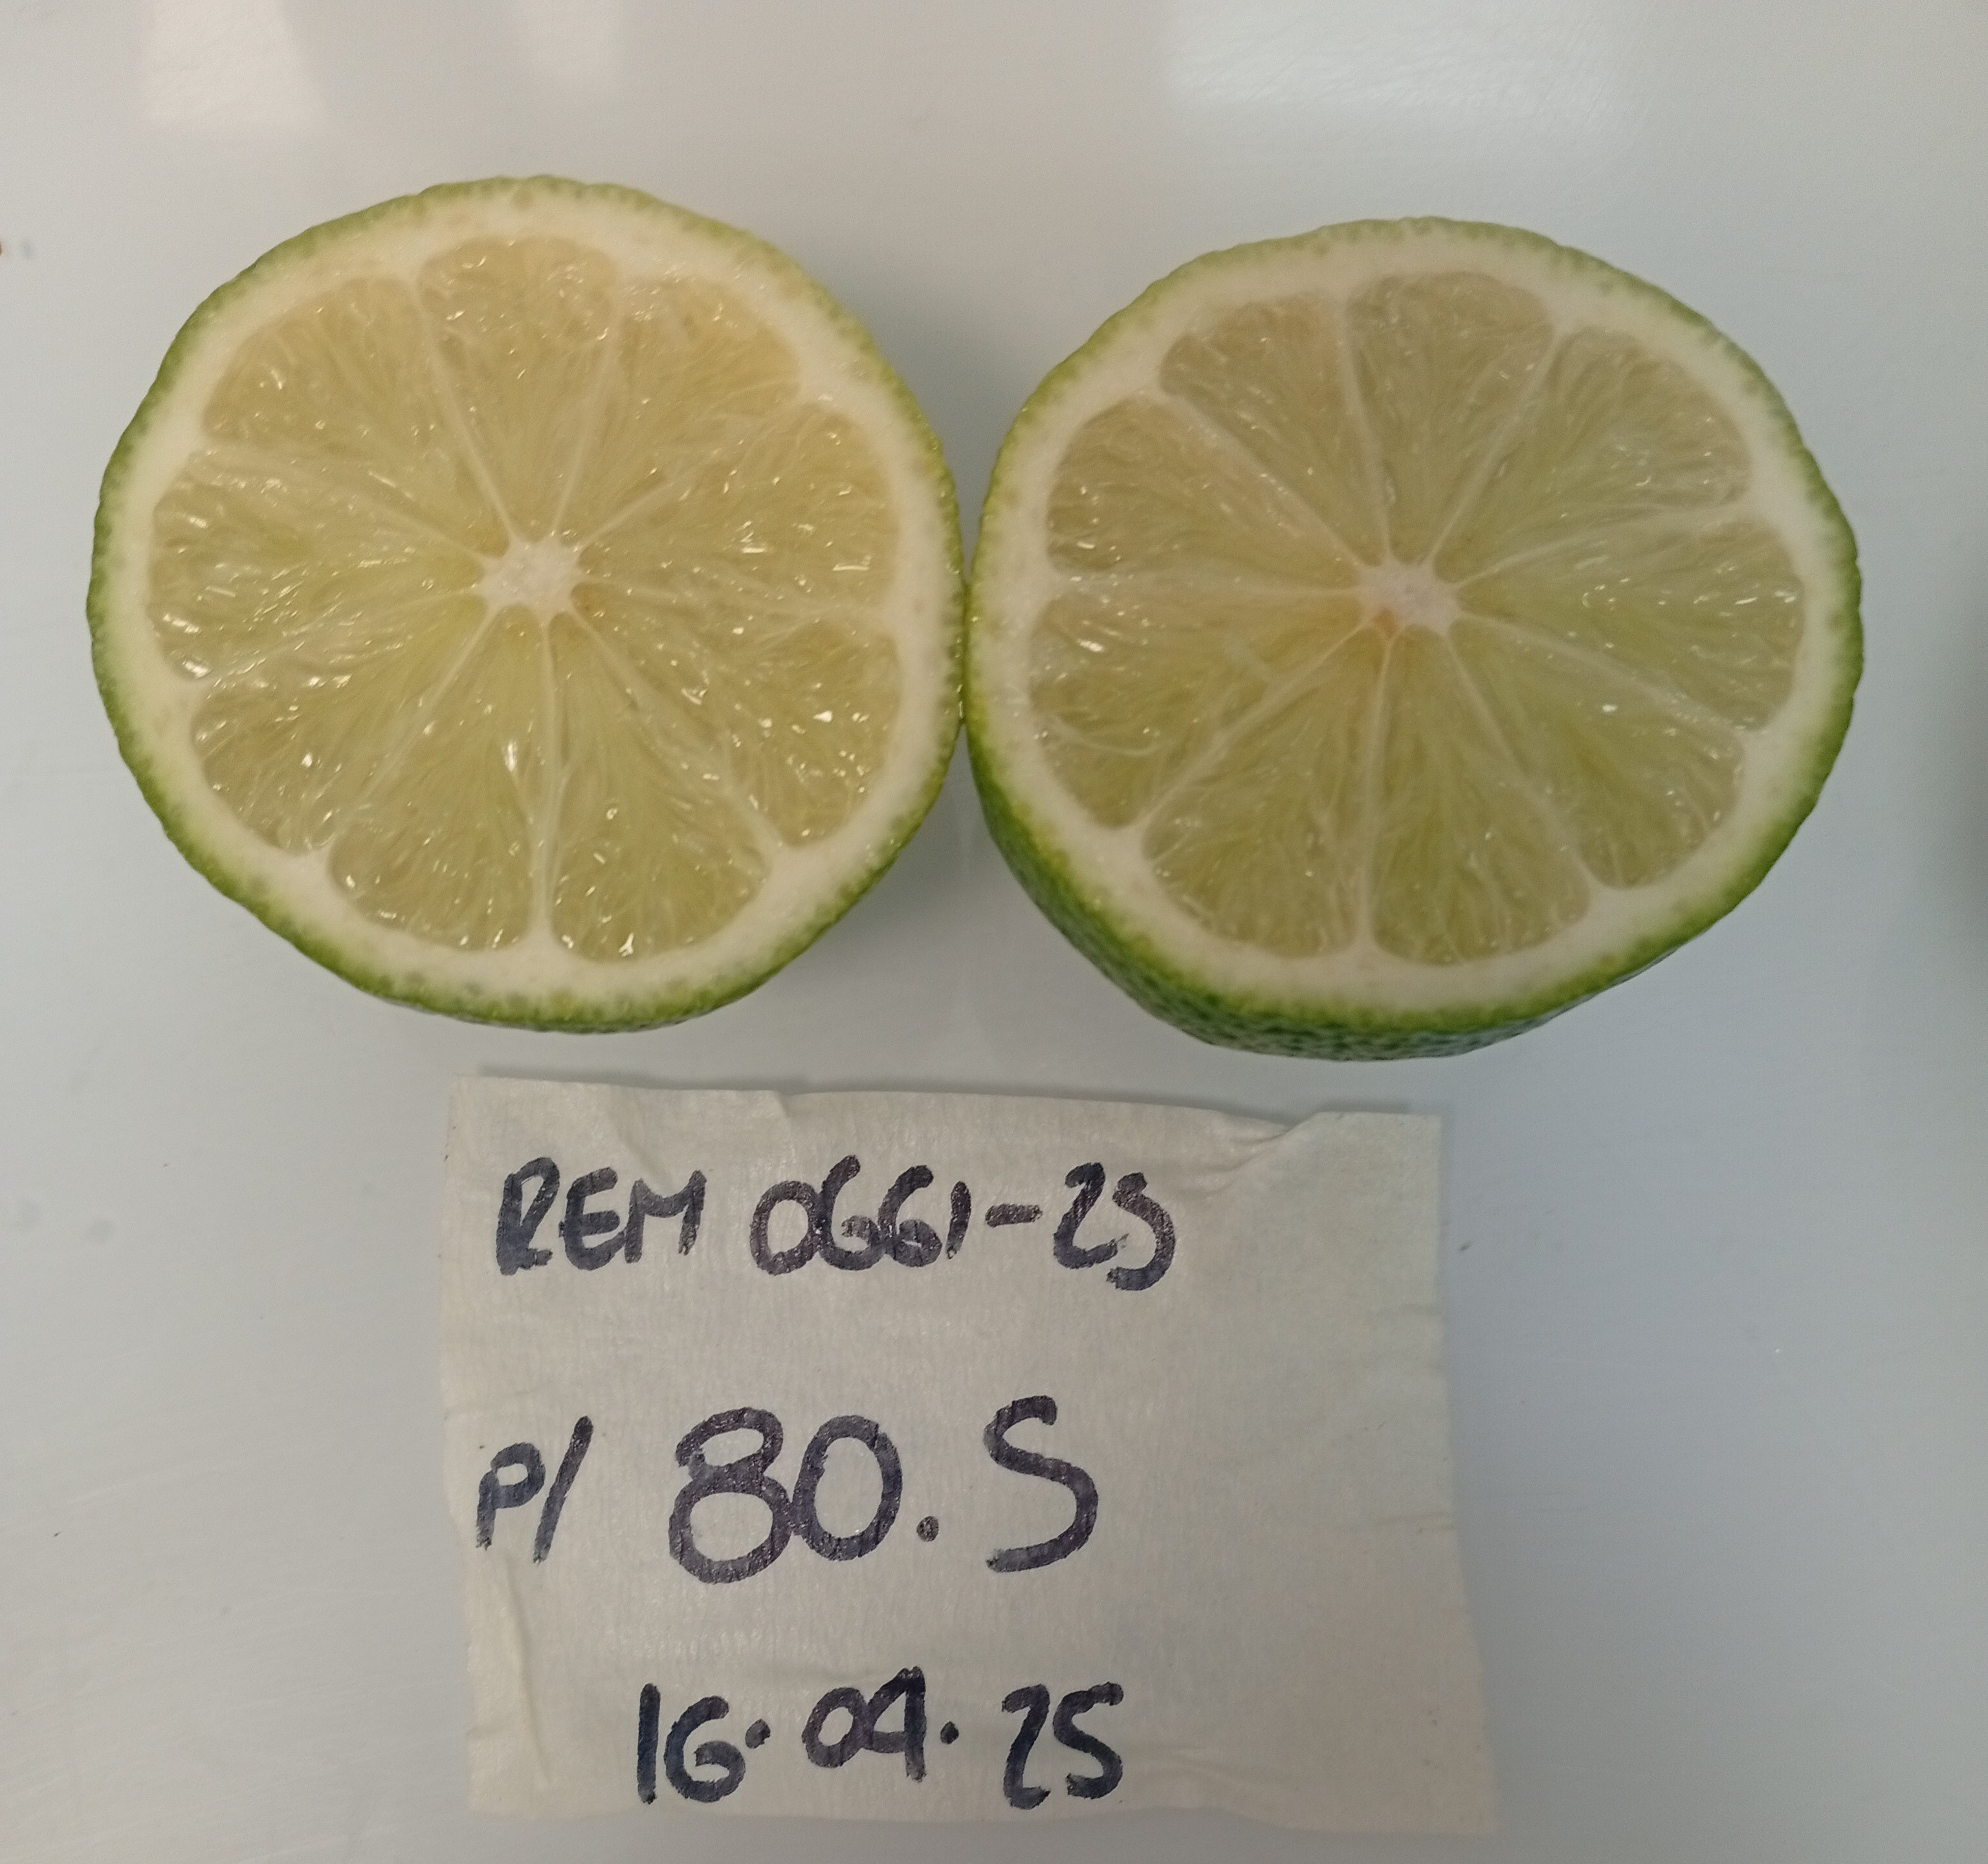 REM 0661-25
P/ 80.5
16.04.25